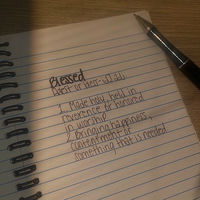 Blessed
1. Made holy, held in
reverence or honored
in worship
2. Bringing happiness,
contentment or
something that is needed